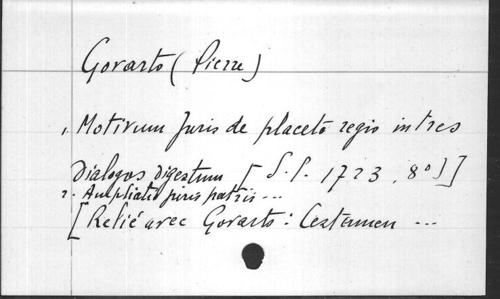 Govarts (Pierre)
1, Motivum Juris de placeto regio in tres
Dialogos digestum [S.l. 1723, 8°)]
2. Ampliatio juris patris ...
[Relié avec Govarts: Certamen ...